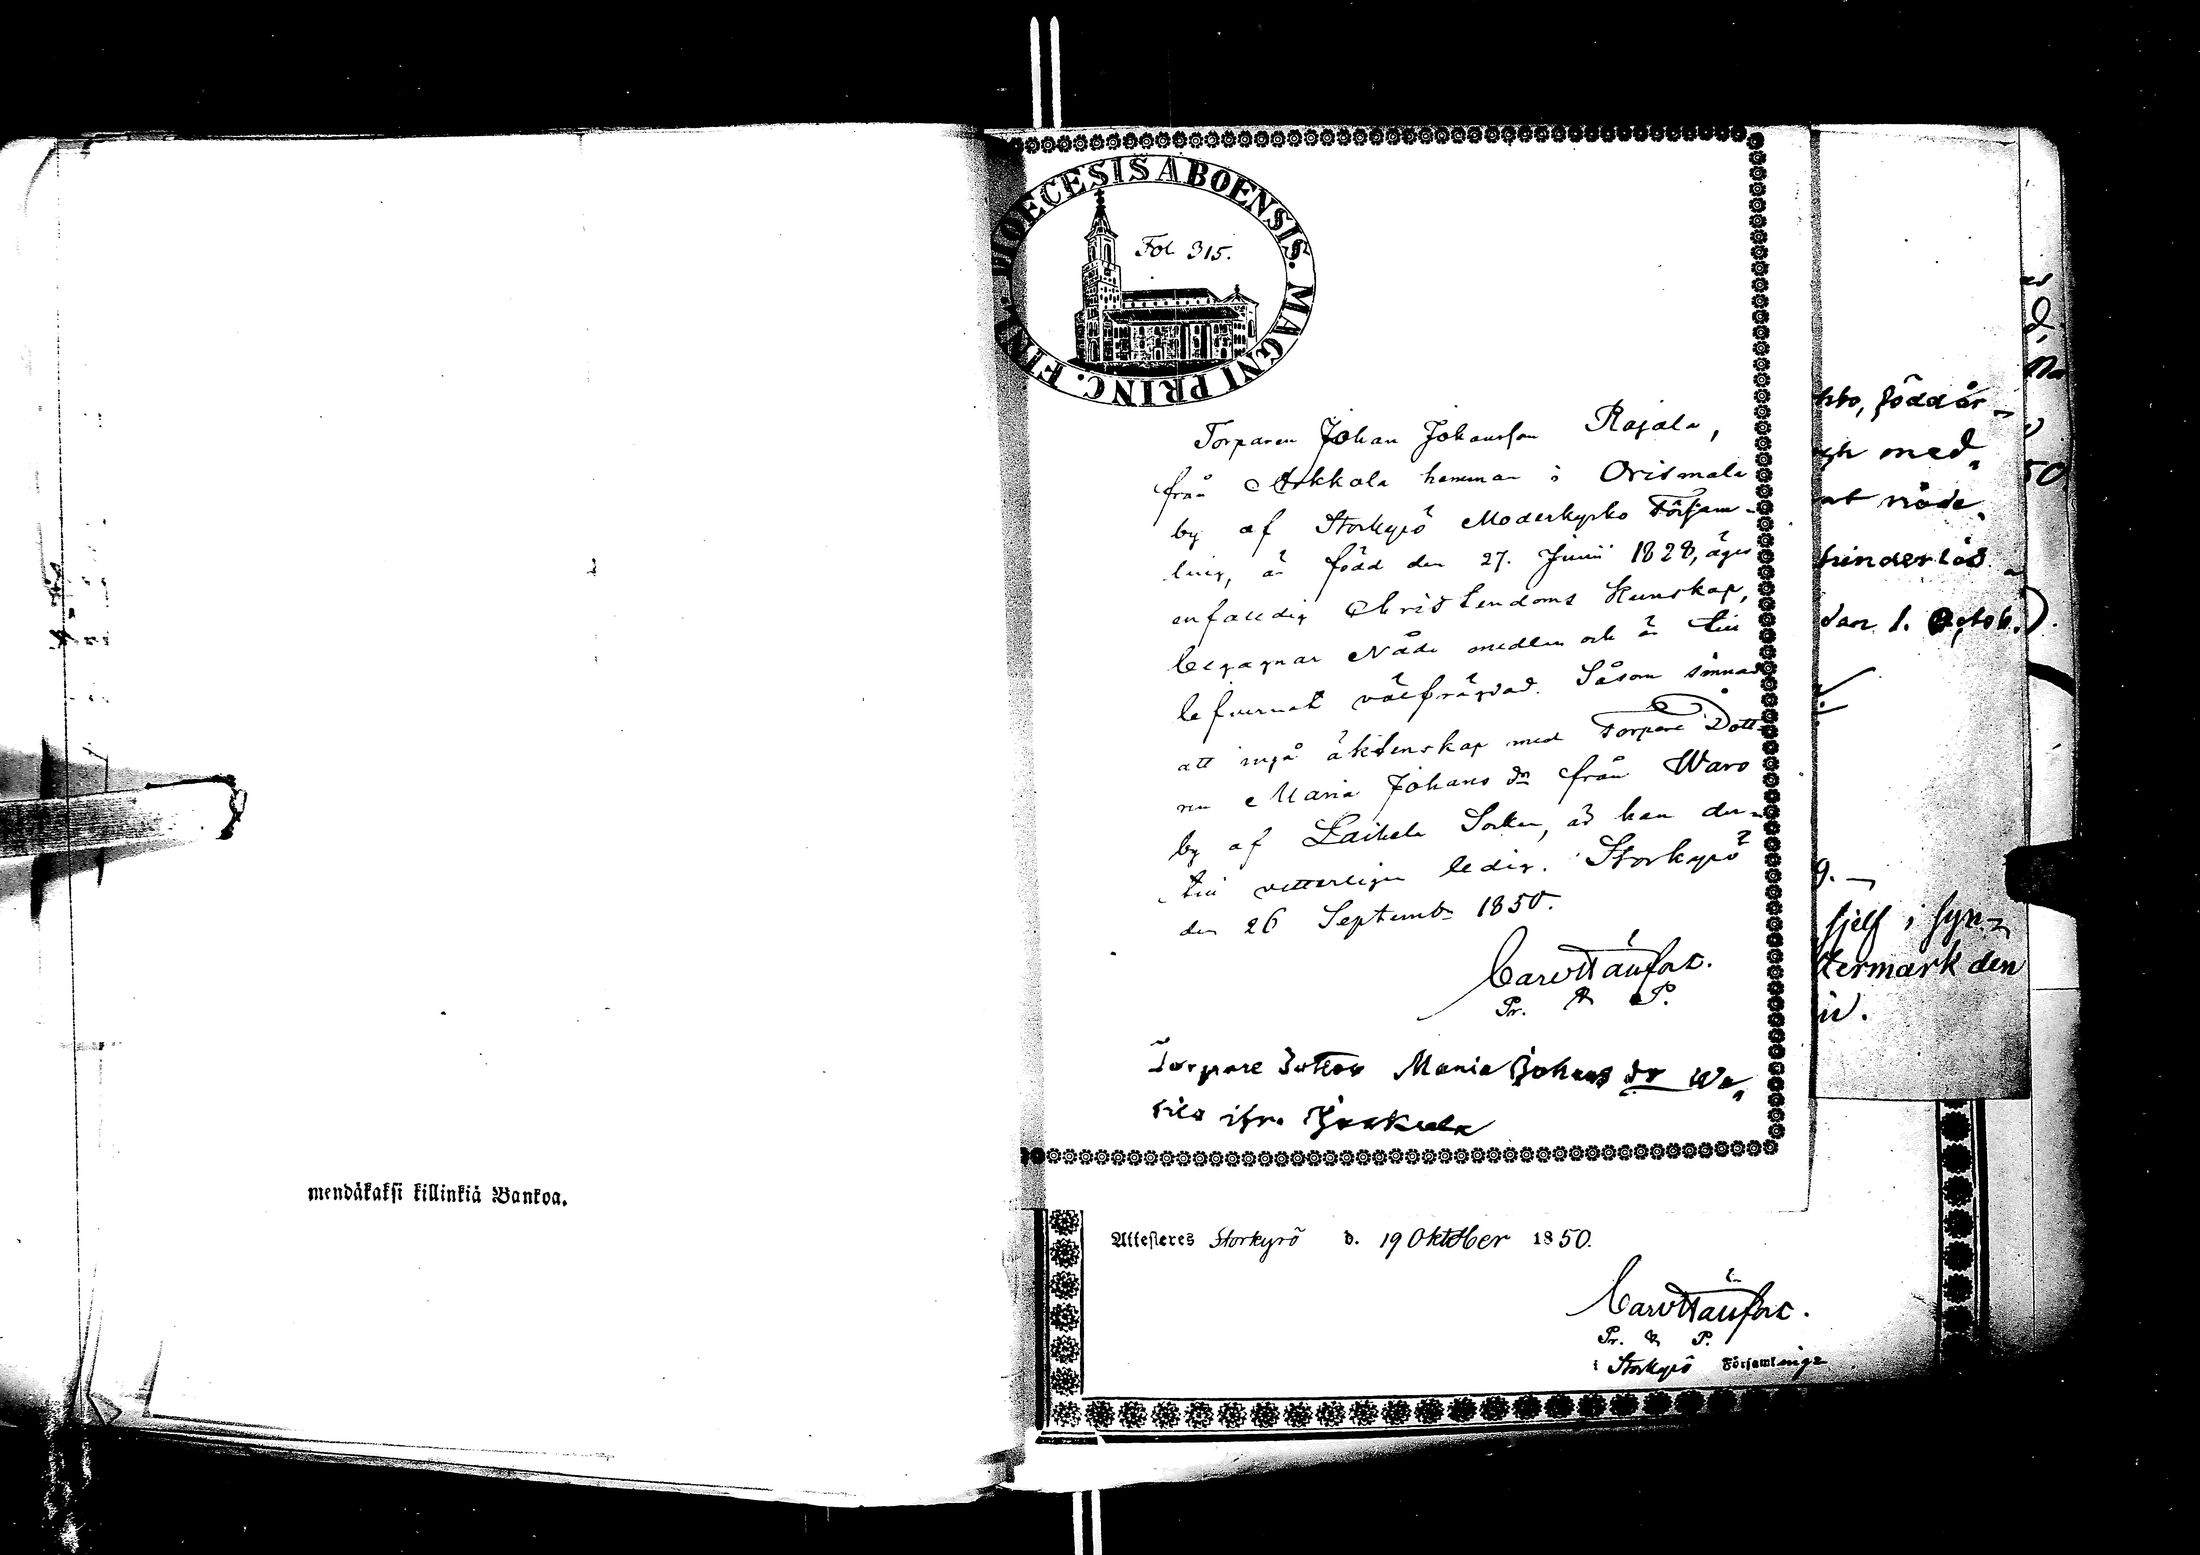 mendäkaksi killinkiä Bankoa.
DIOECESIS ABOENSIS. MAGNI PRINC. FINL.
Fol. 315.
Torparen Johan Johansson Rajala,
från Arkkola hemman i Orismala
by af Storkyrö Moderkyrko Försam-
ling, är född den 27. Junii 1828, äger
enfaldig Christendoms Kunskap,
begagnar Nåde medlen och är till
lefvernet välfrägdad. Såsom sinnad
att ingå äktenskap med Torpare Dott-
ren Maria Johans dr från Waro
by af Laihela Socken, är han der-
till vetterligen ledig. Storkyrö
den 26 Septemb. 1850.
Pr. & P.
Torpare Dottern Maria Johans dr Wa-
ifr.
Attesteres Storkyrö d. 19 Oktober 1850.
Pr. & P.
i Storkyrö Församlinge
född år
med
nåde
hinderlös
den 1. Octob.
sjelf i syn-
termark den
50